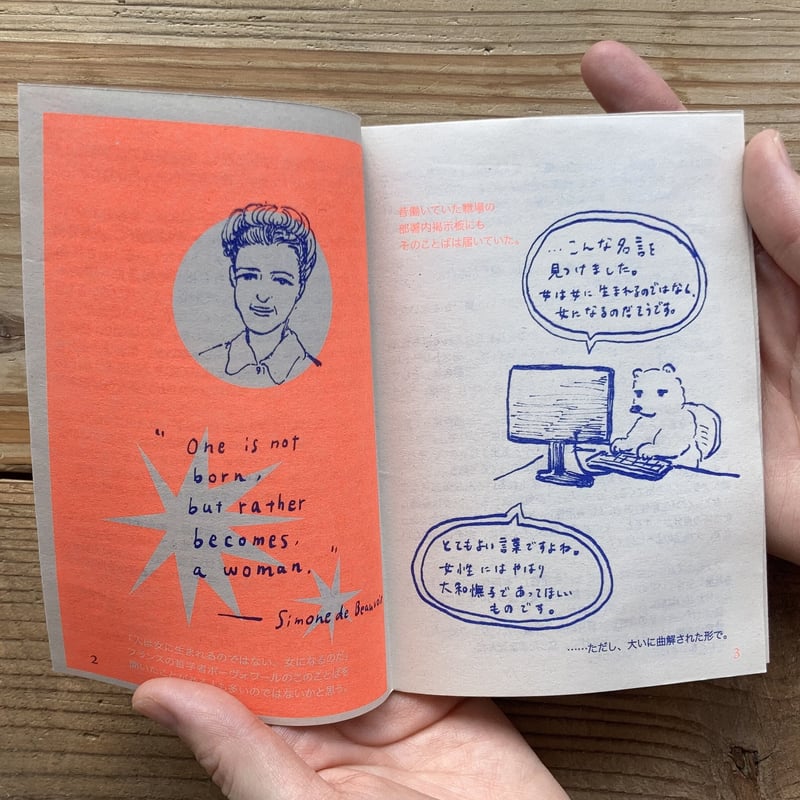 “ One is not
born,
but rather
becomes,
a woman. ”
— Simone de Beauvoir
「人は女に生まれるのではない、女になるのだ」
フランスの哲学者ボーヴォワールのこのことばを
多いのではないかと思う。
2
昔働いていた職場の
部署内掲示板にも
そのことばは届いていた。
…こんな名言を
見つけました。
女は女に生まれるのではなく、
女になるのだそうです。
とてもよい言葉ですよね。
女性にはやはり
大和撫子であってほしい
ものです。
……ただし、大いに曲解された形で。
3